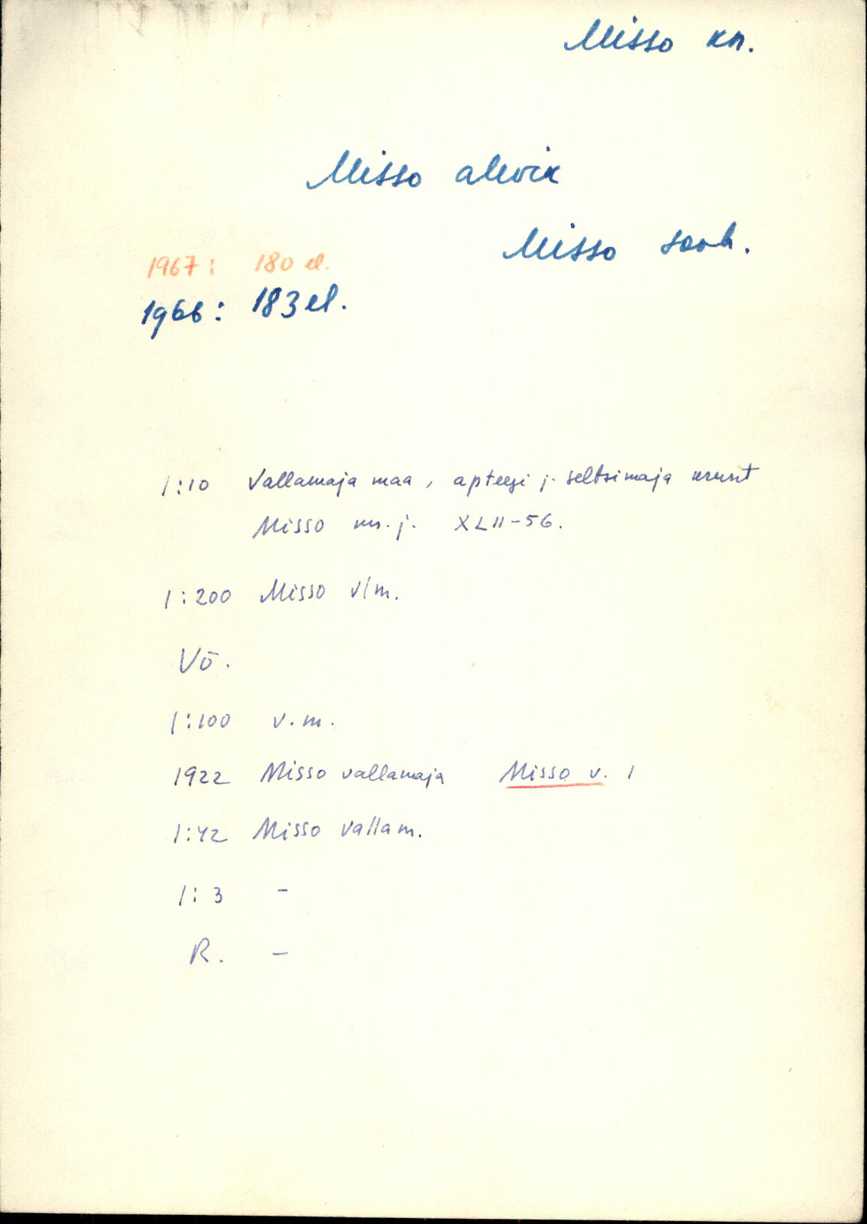 Misso kn.
Misso alevik
Misso sovh.
1967: 180 el.
1966: 183 el.
1:10 Vallamaja maa, apteegi j. seltsimaja krunt
Misso mr. j. XLII-56.
1:200 Misso v/m.
Võ.
1:100 v.m.
1922 Misso vallamaja Misso v. 1
1:42 Misso vallam.
1:3 -
R. -